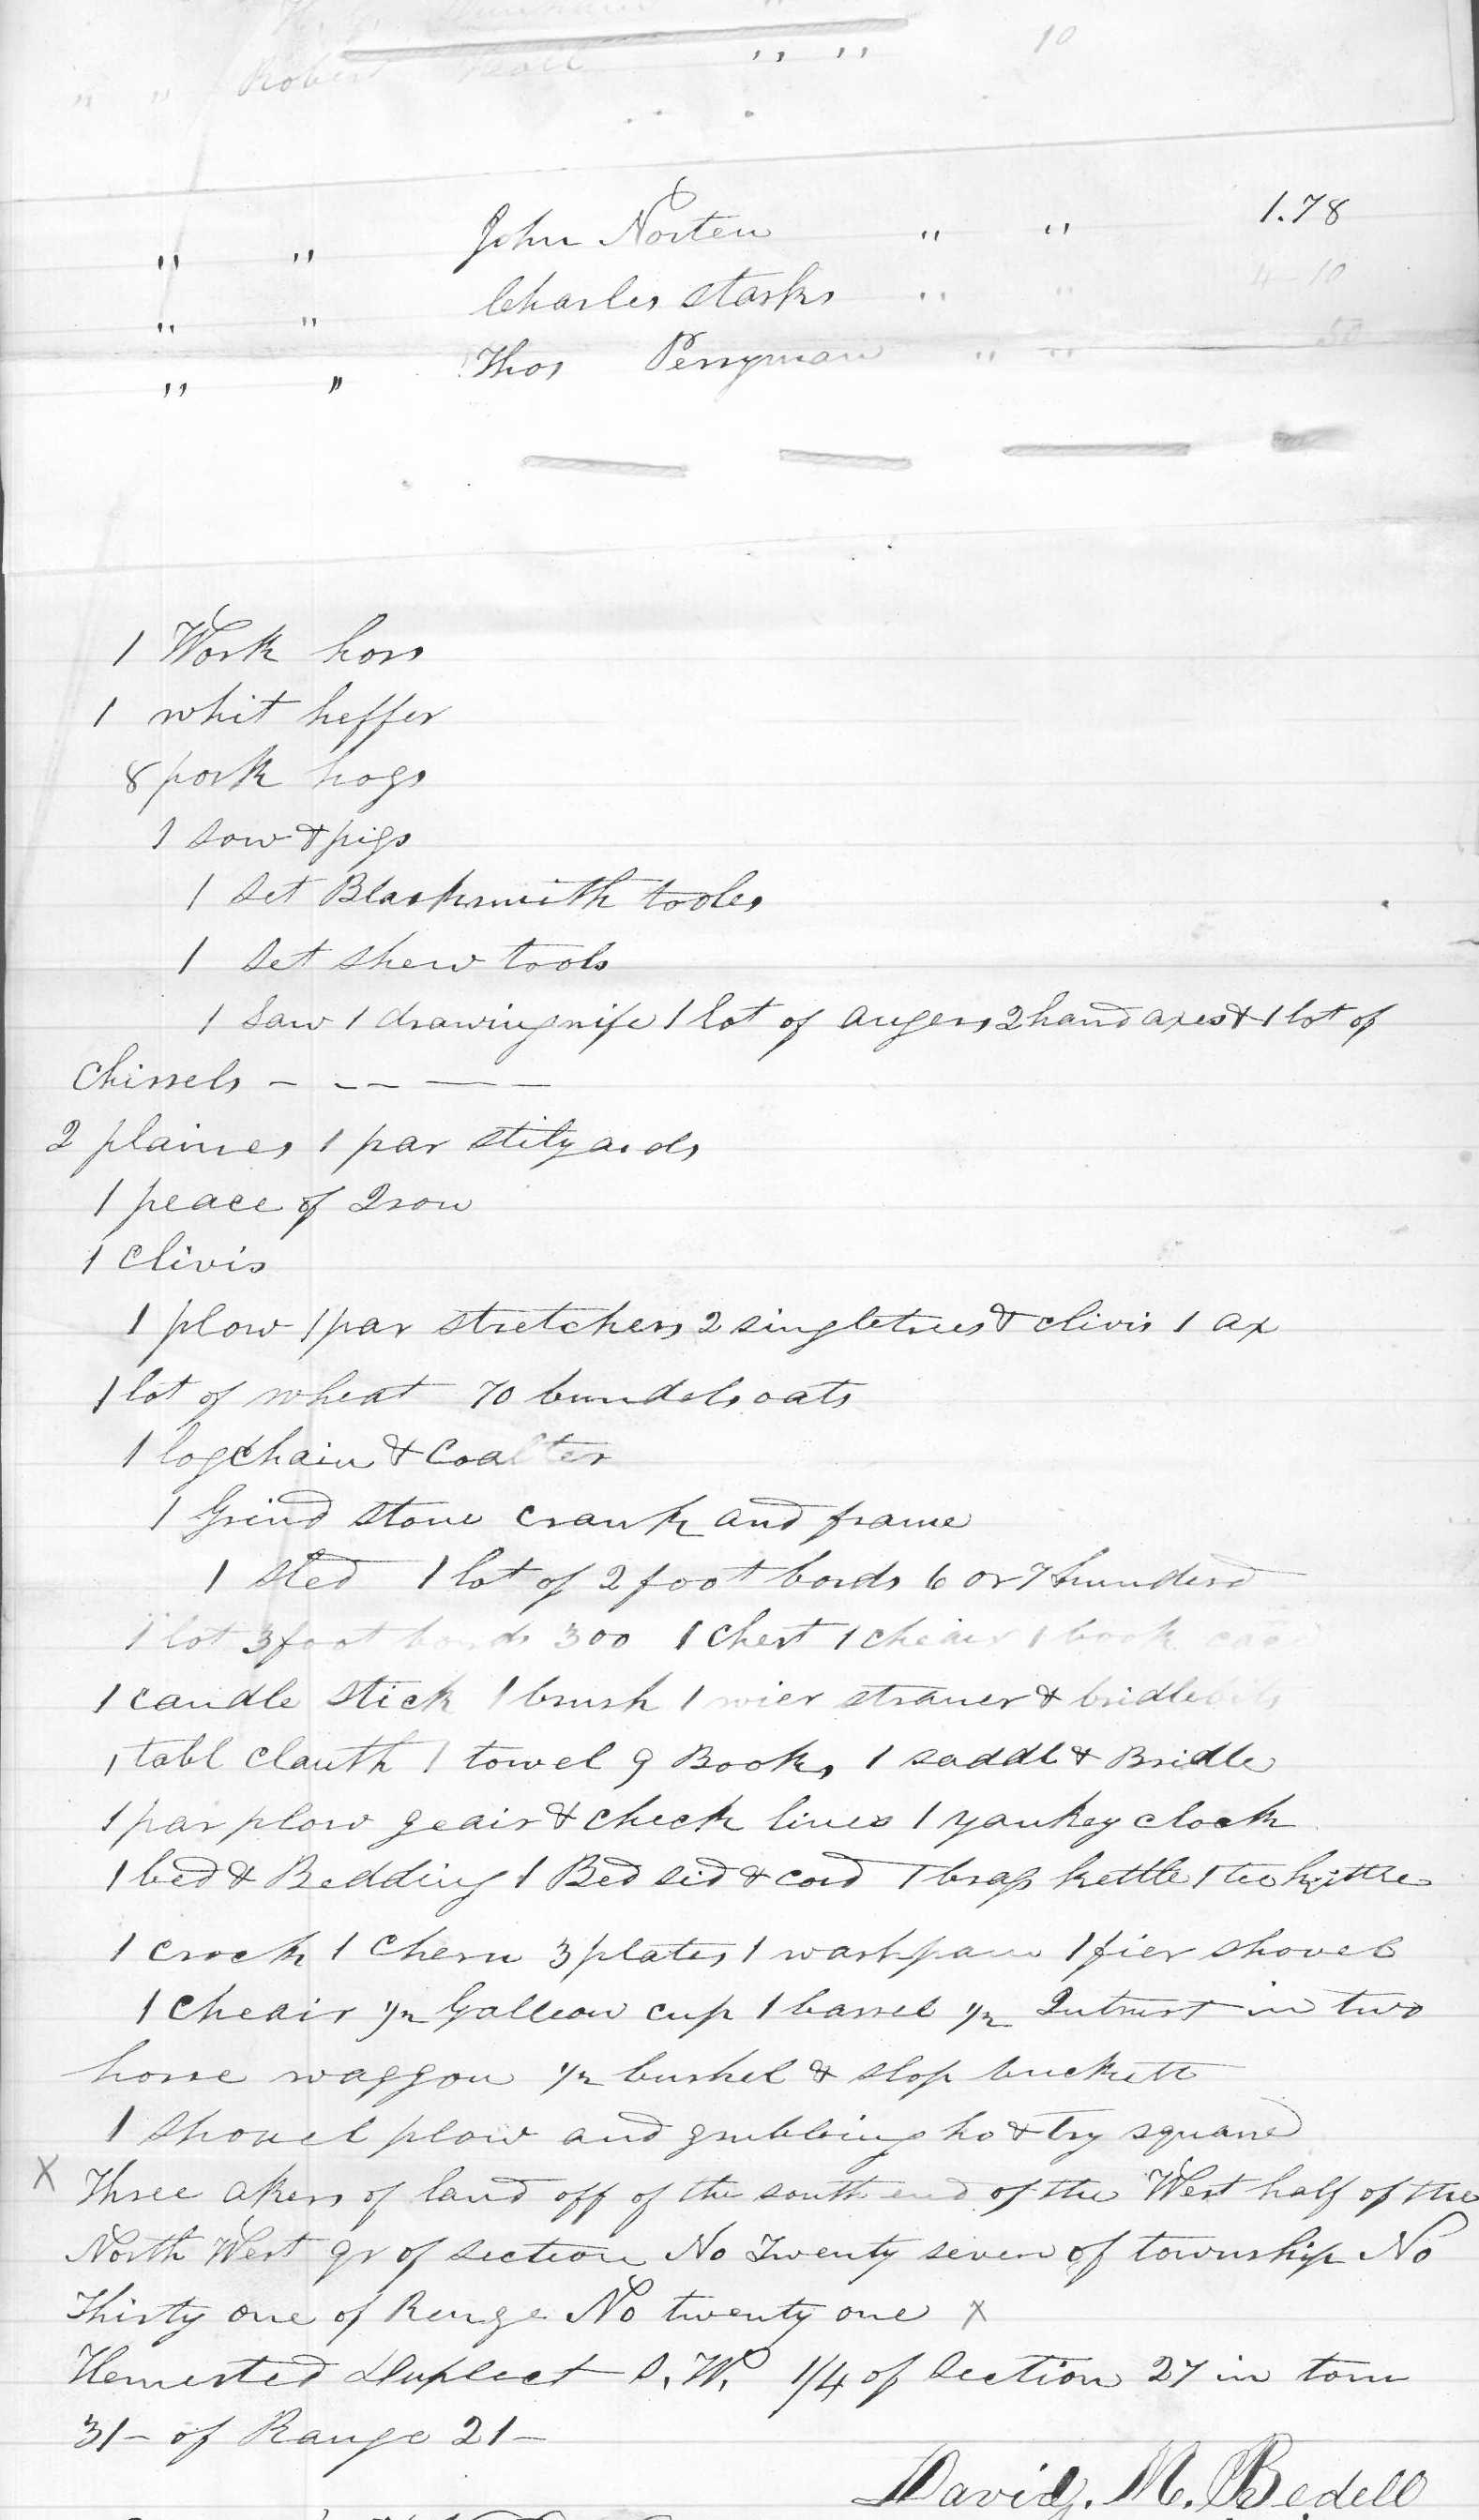 " " Robert " " 10
" " John Norten " " 1.78
" " Charles Starks " " 4-10
" " Thos Perryman " " 50
1 Work hors
1 whit heffer
8 pork hogs
1 sow & pigs
1 Set Blacksmith tooles
1 Set shew tools
1 Saw 1 drawingnife 1 lot of augers 2 hand axes & 1 lot of
Chissels - - - - -
2 plaines 1 par stilyards
1 peace of Iron
1 Clivis
1 plow 1 par stretchers 2 singletrees & clivis 1 ax
1 lot of wheat 70 bundels oats
1 logchain & Coalter
1 Grind stone crank and frame
1 Sled 1 lot of 2 foot bords 6 or 7 hunderd
1 lot 3 foot bords 300 1 Chest 1 cheair 1 book cas
1 candle stick 1 brush 1 wier straner & bridle bits
1 tabl clauth 1 towel 9 Books 1 saddl & Bridle
1 par plow geair & check lines 1 yankey clock
1 bed & Bedding 1 Bed sid & cord 1 brass kettle 1 tee kittle
1 crock 1 Chern 3 plates 1 washpan 1 fier shovel
1 Cheair 1/2 Galleon cup 1 barrel 1/2 Intrust in two
horse waggon 1/2 bushel & slop buckett
1 Shovel plow and grubbing ho & try square
X Three akers of land off of the south end of the West half of the
North West qr of section No Twenty seven of township No
Thirty one of Renge No twenty one X
Hemested Duplect S. W. 1/4 of Section 27 in town
31- of Range 21-
David. M. Bedell